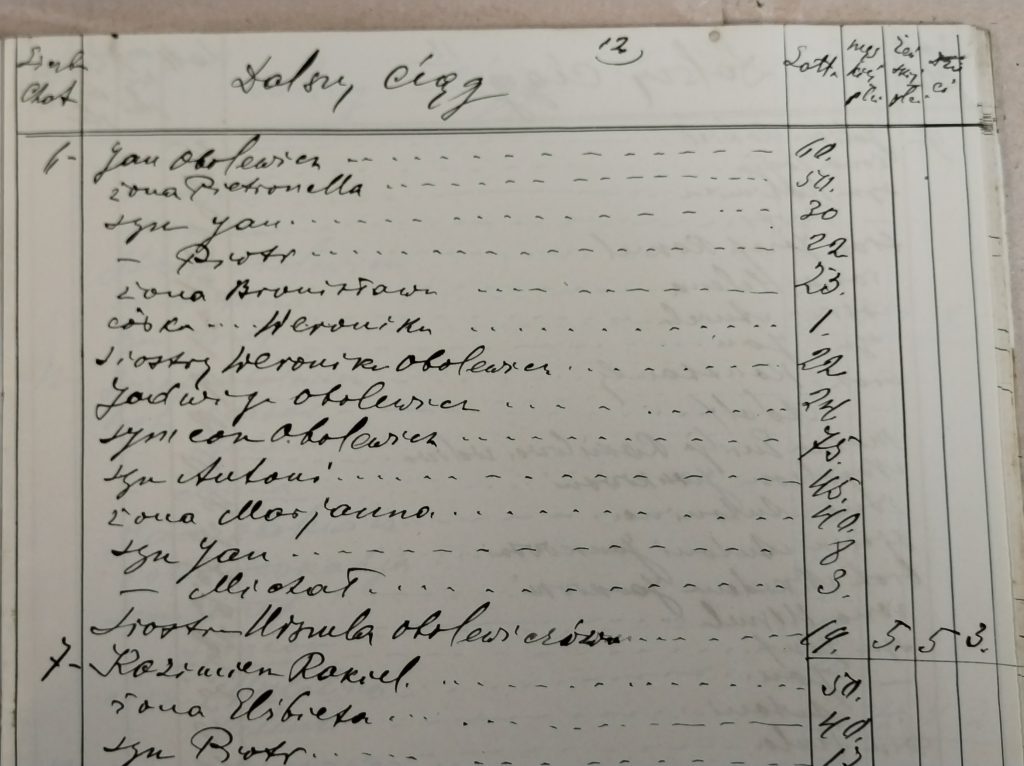 12
Liczba Chat
Dalszy ciąg
Latta
męs kiej płci
żeń skiej płci
Dzie ci
6- Jan Obolewicz 60.
żona Pietronella 50.
syn Jan 30
— Piotr 22
żona Bronisława 23.
córka Weronika 1.
siostry Weronika Obolewicz 22
Jadwiga Obolewicz 24
Symeon Obolewicz 75.
syn Antoni 45.
żona Marjanna 40.
syn Jan 8
— Michał 3.
siostra Obolewiczówna 19. 5. 5 3.
7- Kazimierz Rakiel. 50.
żona Elżbieta 40.
syn Piotr 13